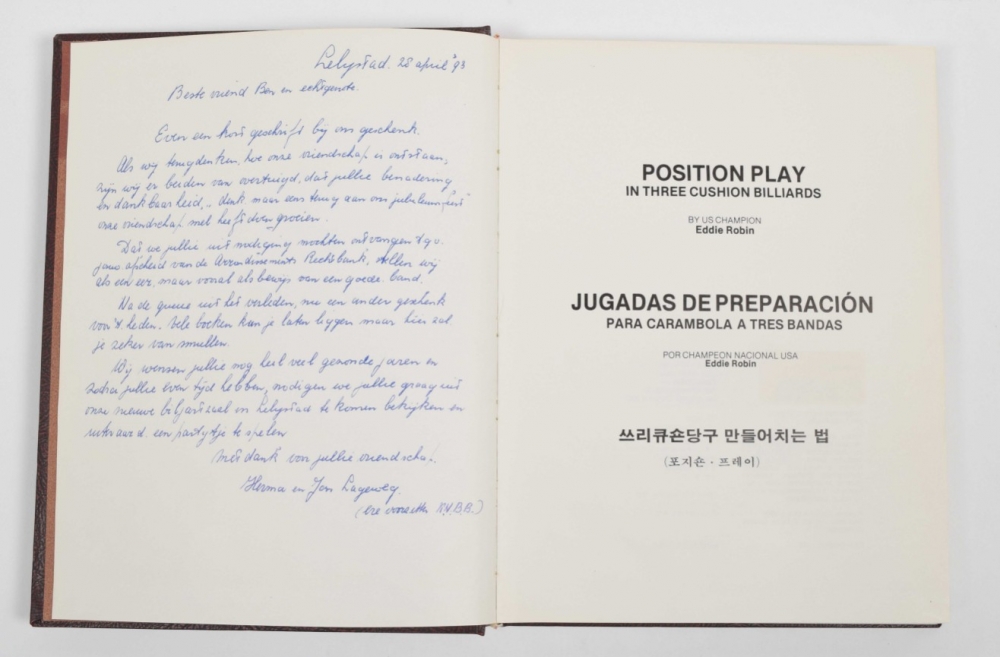 Lelystad. 28 april '93
Beste vriend Ben en echtgenote.
Even een kort geschrift bij ons geschenk.
Als wij terugdenken, hoe onze vriendschap is ontstaan,
zijn wij er beiden van overtuigd, dat jullie benadering
en dankbaarheid, denk maar eens terug aan ons jubileumfeest
onze vriendschap met heeft doen groeien.
Dat we jullie uitnodiging mochten ontvangen t.g.v.
jouw afscheid van de Arrondissements Rechtbank, stellen wij
als een eer, maar vooral als bewijs van een goede band.
Na de queue uit het verleden, nu een ander geschenk
voor 't heden. Vele boeken kan je laten liggen maar hier zal
je zeker van smullen.
Wij wensen jullie nog heel veel gezonde jaren en
zodra jullie even tijd hebben, nodigen we jullie graag uit
onze nieuwe biljartzaal in Lelystad te komen bekijken en
uiteraard een partijtje te spelen
Met dank voor jullie vriendschap.
Herma en Jan Lageweg.
(ere voorzitter K.N.B.B.)
POSITION PLAY
IN THREE CUSHION BILLIARDS
BY US CHAMPION
Eddie Robin
JUGADAS DE PREPARACIÓN
PARA CARAMBOLA A TRES BANDAS
POR CHAMPEON NACIONAL USA
Eddie Robin
쓰리큐숀당구 만들어치는 법
(포지숀 · 프레이)